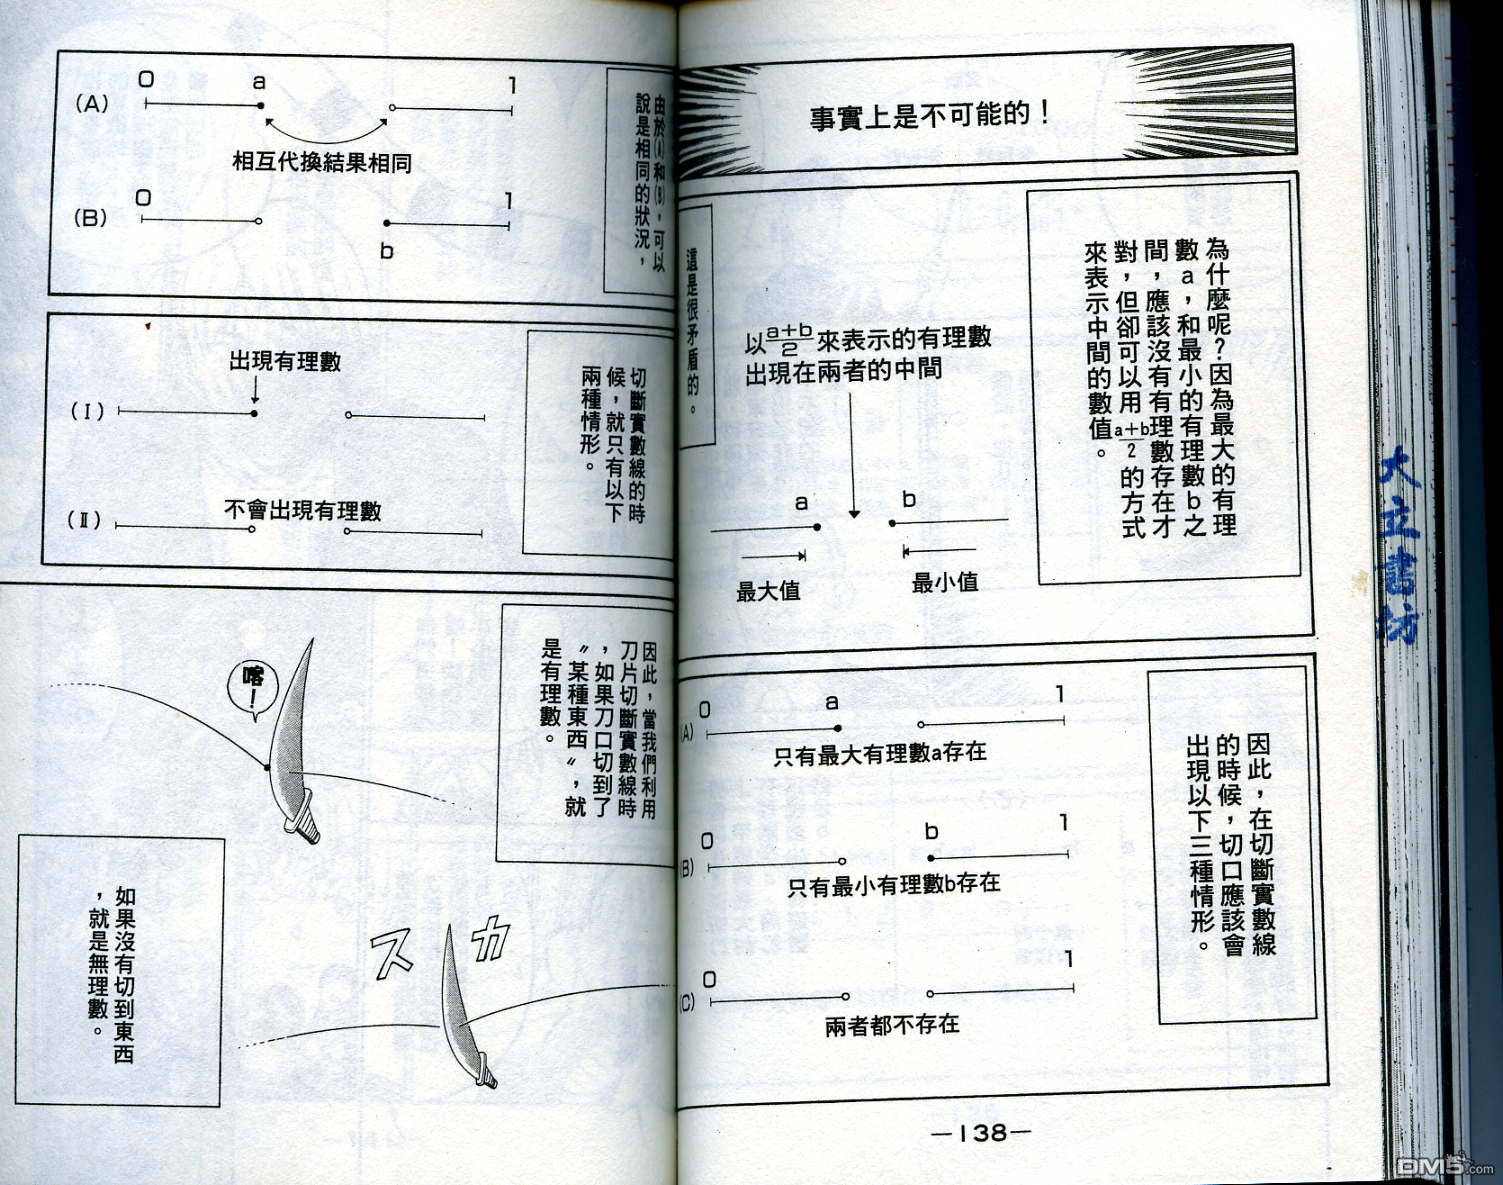 事實上是不可能的！
為什麼呢？因為最大的有理
數a，和最小的有理數b之
間，應該沒有有理數存在才
對，但卻可以用a+b/2的方式
來表示中間的數值。
以a+b/2來表示的有理數
出現在兩者的中間
a
b
最大值
最小值
這是很矛盾的。
因此，在切斷實數線
的時候，切口應該會
出現以下三種情形。
0
a
1
(A)
只有最大有理數a存在
0
b
1
(B)
只有最小有理數b存在
0
1
(C)
兩者都不存在
—138—
由於(A)和(B)，可以
說是相同的狀況，
0
a
1
(A)
相互代換結果相同
0
1
(B)
b
切斷實數線的時
候，就只有以下
兩種情形。
出現有理數
(Ⅰ)
不會出現有理數
(Ⅱ)
因此，當我們利用
刀片切斷實數線時
，如果刀口切到了
〝某種東西〞，就
是有理數。
喀！
スカ
如果沒有切到東西
，就是無理數。
大立書坊
DM5.com